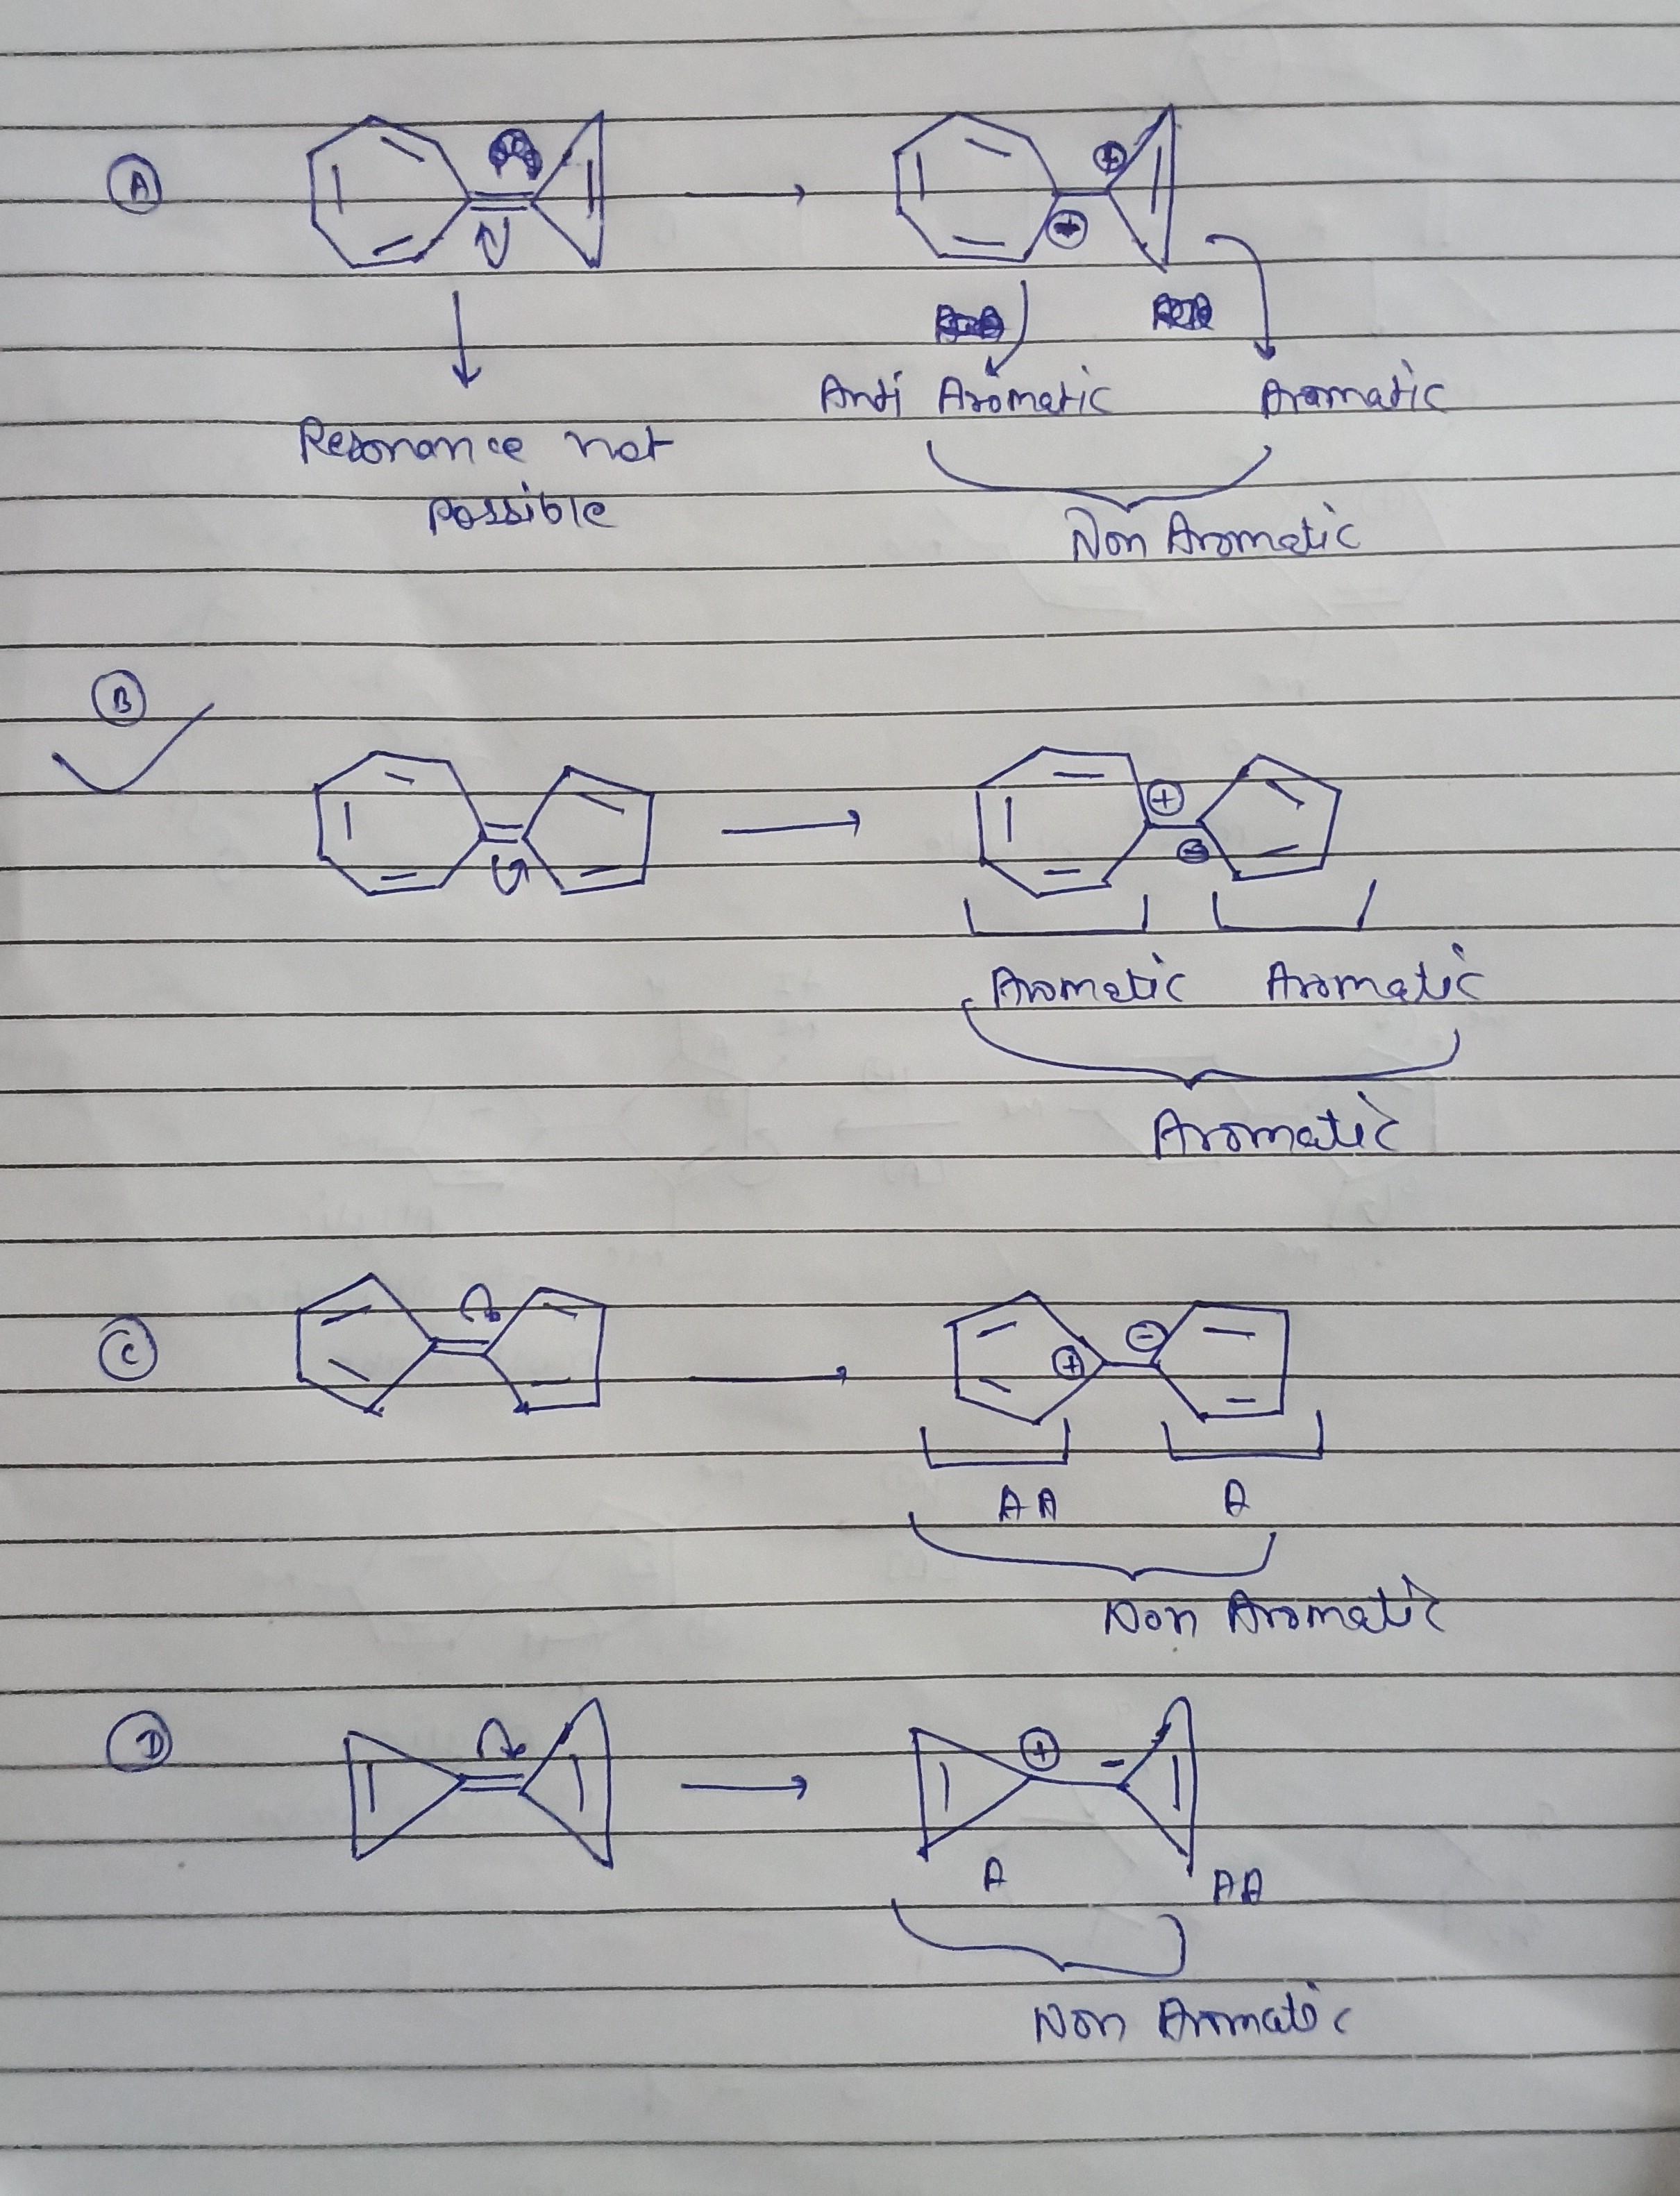 A
+
+
Resonance not
possible
Anti Aromatic Aromatic
Non Aromatic
B
+
-
Aromatic Aromatic
Aromatic
C
+ -
AA A
Non Aromatic
D
+ -
A AA
Non Aromatic